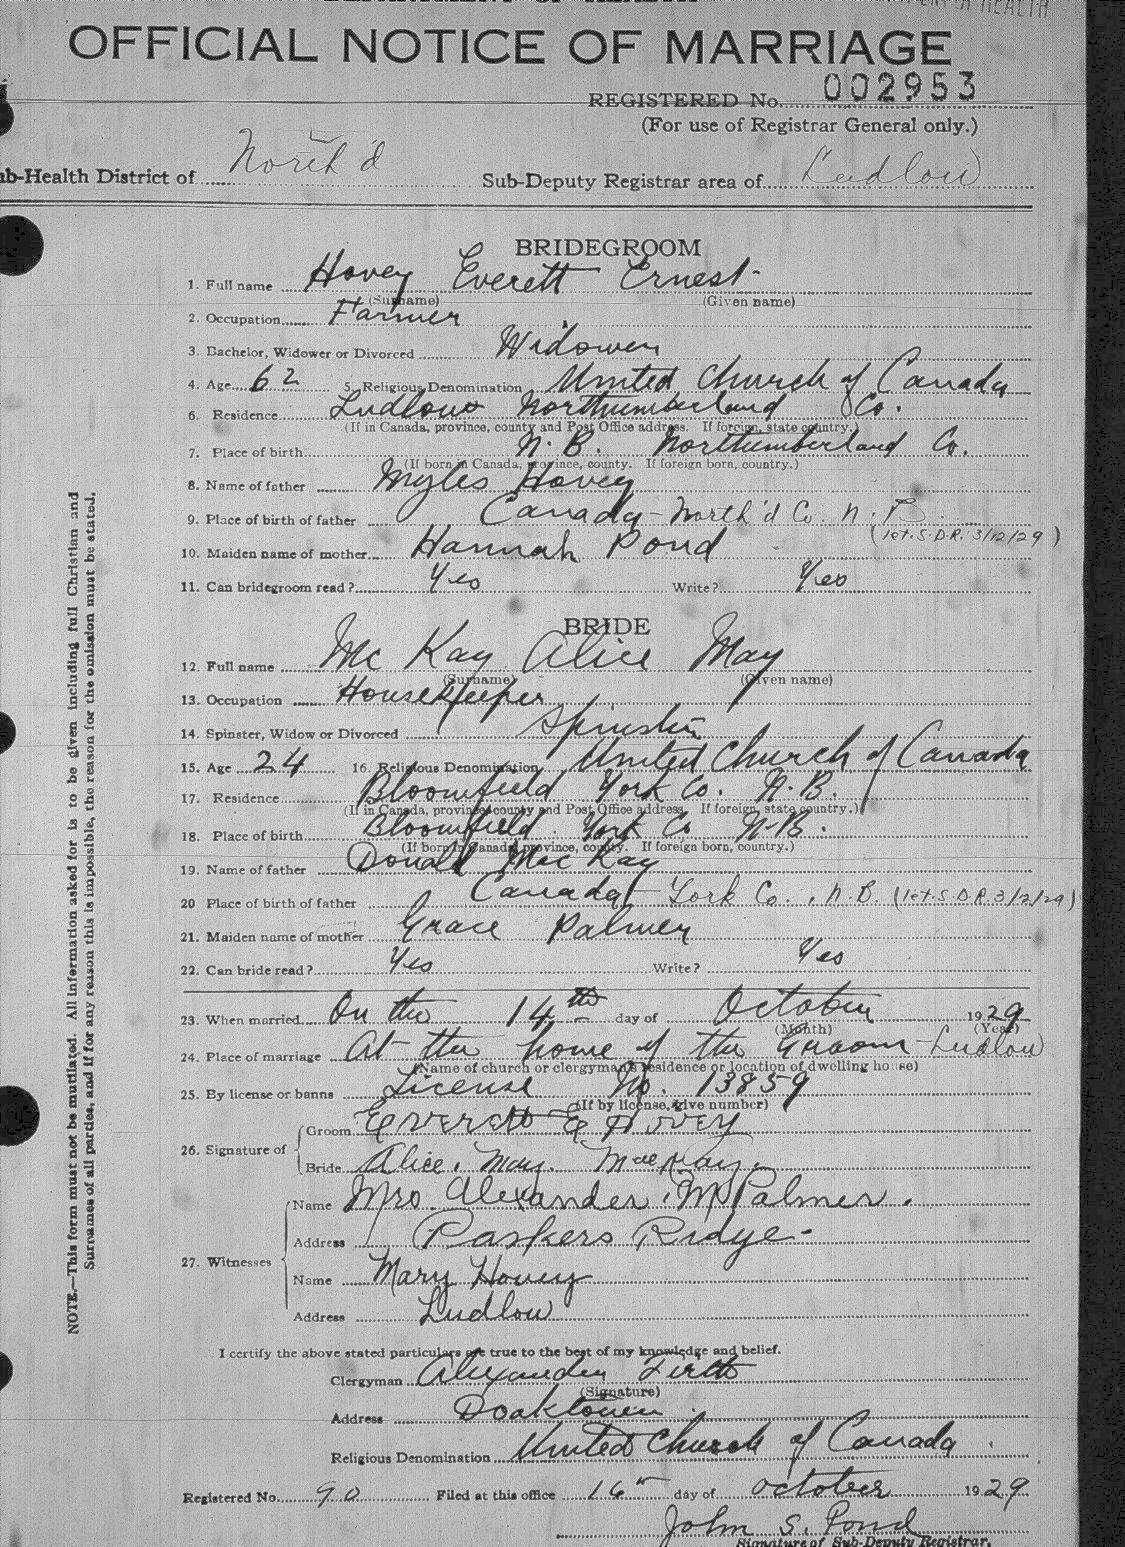 DEPARTMENT OF HEALTH
OFFICIAL NOTICE OF MARRIAGE
REGISTERED No. 002953
(For use of Registrar General only.)
ub-Health District of North'd Sub-Deputy Registrar area of Ludlow
BRIDEGROOM
1. Full name Hovey Everett Ernest
(Surname) (Given name)
2. Occupation Farmer
3. Bachelor, Widower or Divorced Widower
4. Age 62 5. Religious Denomination United Church of Canada
6. Residence Ludlow Northumberland Co.
(If in Canada, province, county and Post Office address. If foreign, state country.)
7. Place of birth N. B. Northumberland Co.
(If born in Canada, province, county. If foreign born, country.)
8. Name of father Myles Hovey
9. Place of birth of father Canada - North'd Co. N. B.
(let. S.D.R. 3/12/29)
10. Maiden name of mother Hannah Pond
11. Can bridegroom read? Yes Write? Yes
BRIDE
12. Full name Mc Kay Alice May
(Surname) (Given name)
13. Occupation Housekeeper
14. Spinster, Widow or Divorced Spinster
15. Age 24 16. Religious Denomination United Church of Canada
17. Residence Bloomfield York Co. N.B.
(If in Canada, province, county and Post Office address. If foreign, state country.)
18. Place of birth Bloomfield York Co N.B.
(If born in Canada, province, county. If foreign born, country.)
19. Name of father Donald Mac Kay
20 Place of birth of father Canada - York Co., N.B. (let. S.D.R. 3/12/29)
21. Maiden name of mother Grace Palmer
22. Can bride read? Yes Write? Yes
23. When married On the 14th day of October 1929
(Month) (Year)
24. Place of marriage At the home of the Groom - Ludlow
(Name of church or clergyman's residence or location of dwelling house)
25. By license or banns License No. 13859
(If by license, give number)
26. Signature of
Groom Everett E Hovey
Bride Alice. May. MacKay.
27. Witnesses
Name Mrs. Alexander Mc Palmer.
Address Parkers Ridge -
Name Mary Hovey
Address Ludlow
I certify the above stated particulars are true to the best of my knowledge and belief.
Clergyman Alexander Firth
(Signature)
Address Doaktown
Religious Denomination United Church of Canada
Registered No. 90 Filed at this office 16th day of October 1929
John S. Pond
Signature of Sub-Deputy Registrar.
NOTE.—This form must not be mutilated. All information asked for is to be given including full Christian and
Surnames of all parties, and if for any reason this is impossible, the reason for the omission must be stated.